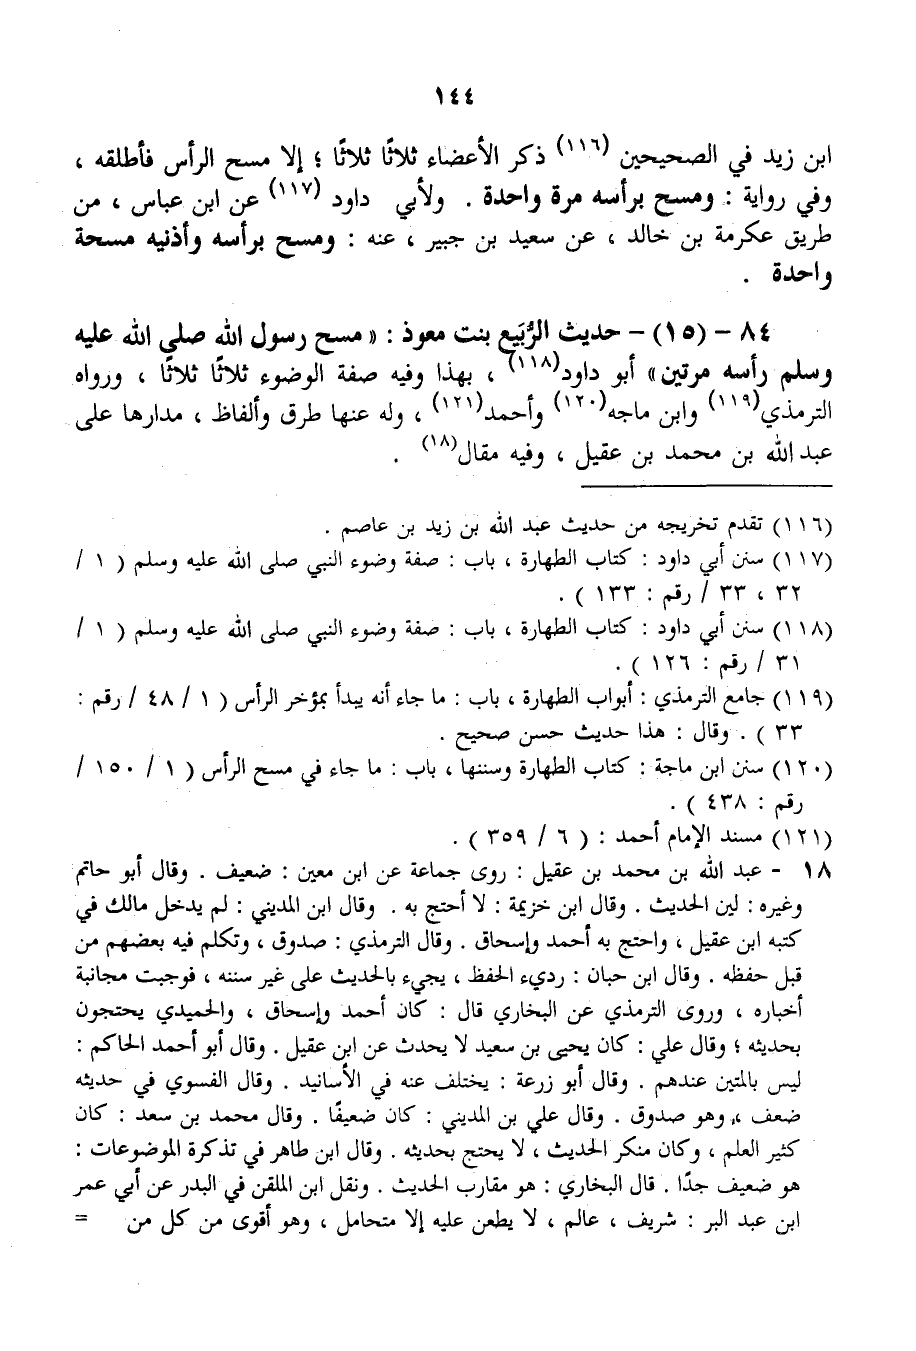 ١٤٤
ابن زيد في الصحيحين (١١٦) ذكر الأعضاء ثلاثًا ثلاثًا ؛ إلا مسح الرأس فأطلقه ،
وفي رواية : ومسح برأسه مرة واحدة . ولأبي داود (١١٧) عن ابن عباس ، من
طريق عكرمة بن خالد ، عن سعيد بن جبير ، عنه : ومسح برأسه وأذنيه مسحة
واحدة .
٨٤ - (١٥) - حديث الرُّبَيع بنت معوذ : « مسح رسول الله صلى الله عليه
وسلم رأسه مرتين » أبو داود(١١٨) ، بهذا وفيه صفة الوضوء ثلاثًا ثلاثًا ، ورواه
الترمذي(١١٩) وابن ماجه(١٢٠) وأحمد(١٢١) ، وله عنها طرق وألفاظ ، مدارها على
عبد الله بن محمد بن عقيل ، وفيه مقال(١٨) .
(١١٦) تقدم تخريجه من حديث عبد الله بن زيد بن عاصم .
(١١٧) سنن أبي داود : كتاب الطهارة ، باب : صفة وضوء النبي صلى الله عليه وسلم ( ١ /
٣٢ ، ٣٣ / رقم : ١٣٣ ) .
(١١٨) سنن أبي داود : كتاب الطهارة ، باب : صفة وضوء النبي صلى الله عليه وسلم ( ١ /
٣١ / رقم : ١٢٦ ) .
(١١٩) جامع الترمذي : أبواب الطهارة ، باب : ما جاء أنه يبدأ بمؤخر الرأس ( ١ / ٤٨ / رقم :
٣٣ ) . وقال : هذا حديث حسن صحيح .
(١٢٠) سنن ابن ماجة : كتاب الطهارة وسننها ، باب : ما جاء في مسح الرأس ( ١ / ١٥٠ /
رقم : ٤٣٨ ) .
(١٢١) مسند الإمام أحمد : ( ٦ / ٣٥٩ ) .
١٨ - عبد الله بن محمد بن عقيل : روى جماعة عن ابن معين : ضعيف . وقال أبو حاتم
وغيره : لين الحديث . وقال ابن خزيمة : لا أحتج به . وقال ابن المديني : لم يدخل مالك في
كتبه ابن عقيل ، واحتج به أحمد وإسحاق . وقال الترمذي : صدوق ، وتكلم فيه بعضهم من
قبل حفظه . وقال ابن حبان : رديء الحفظ ، يجيء بالحديث على غير سننه ، فوجبت مجانبة
أخباره ، وروى الترمذي عن البخاري قال : كان أحمد وإسحاق ، والحميدي يحتجون
بحديثه ؛ وقال علي : كان يحيى بن سعيد لا يحدث عن ابن عقيل . وقال أبو أحمد الحاكم :
ليس بالمتين عندهم . وقال أبو زرعة : يختلف عنه في الأسانيد . وقال الفسوي في حديثه
ضعف ، وهو صدوق . وقال علي بن المديني : كان ضعيفًا . وقال محمد بن سعد : كان
كثير العلم ، وكان منكر الحديث ، لا يحتج بحديثه . وقال ابن طاهر في تذكرة الموضوعات :
هو ضعيف جدًا . قال البخاري : هو مقارب الحديث . ونقل ابن الملقن في البدر عن أبي عمر
ابن عبد البر : شريف ، عالم ، لا يطعن عليه إلا متحامل ، وهو أقوى من كل من =